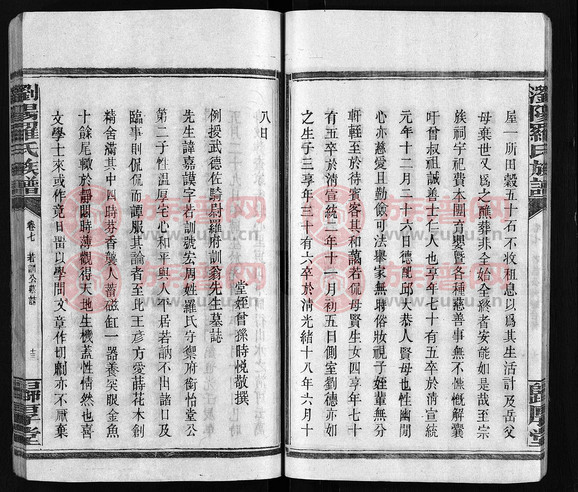 瀏陽羅氏族譜
屋一所田穀五十石不收租息以爲其生活計及岳父
母棄世又爲之醮葬非全始全終者安能如是哉至宗
族祠宇祀費本團育嬰曁各種慈善事無不慷慨解囊
吁曾叔祖誠善士仁人也享年七十有五卒於清宣統
元年十二月二十六日德配邱恭人賢母也性幽閒
心亦慈愛且勤儉可法舉家無時俗妝視子姪輩無分
軒輊至於待賓客其和藹若母賢生女四享年七十
有五卒於清宣統二年十一月初五日側室劉德亦如
之生子三享年三十有六卒於清光緒十八年六月十
八日
堂姪曾孫時悅敬撰
例授武德佐騎尉羅府訓翁先生墓誌
先生諱嘉謨字若訓號宏周姓羅氏守禦府銜怡堂公
第二子性溫厚宅心和平與人不居若訥不出諸口及
臨事則侃侃而譚服其才識於此王彥方愛蒔花木創
精舍滿其中四時芬香襲人蓄磁缸一器養突眼金魚
十餘尾轍於靜閱時薄觀得天地生機蓋性情然也喜
文學士來或作竟日留以學問文章作切劘亦不厭棄
瀏陽羅氏族譜
卷七
若訓公墓誌